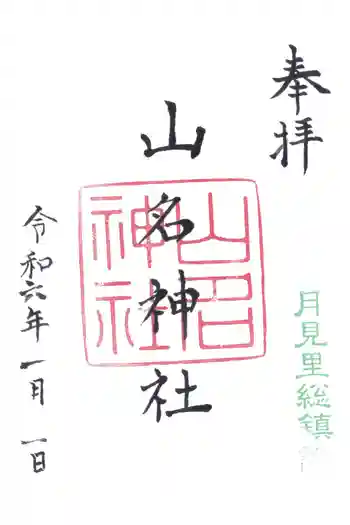 奉拝
月見里総鎮
山名神社
山名
神社
令和六年一月一日